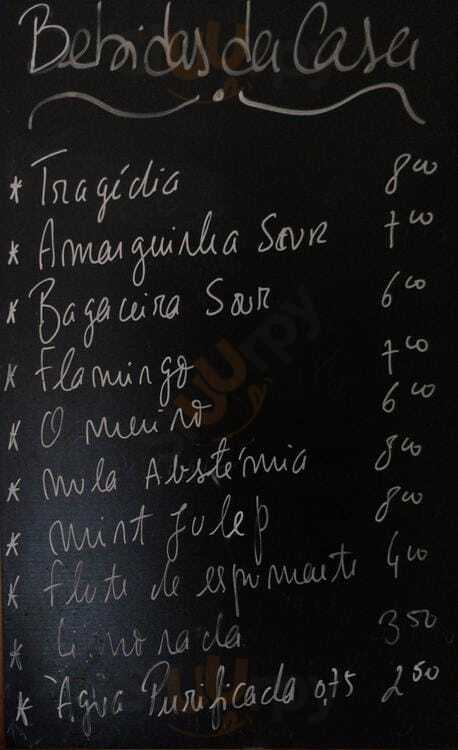 Bebidas da Casa
* Tragédia 8 00
* Amarguinha Sour 7 00
* Bagaceira Sour 6 00
* Flamingo 7 00
* O meiro 6 00
* Mula Abstémia 8 00
* Mint Julep 8 00
* Flute de espumante 4 00
* Limonada 3 50
* Água Purificada 0,75 2 50